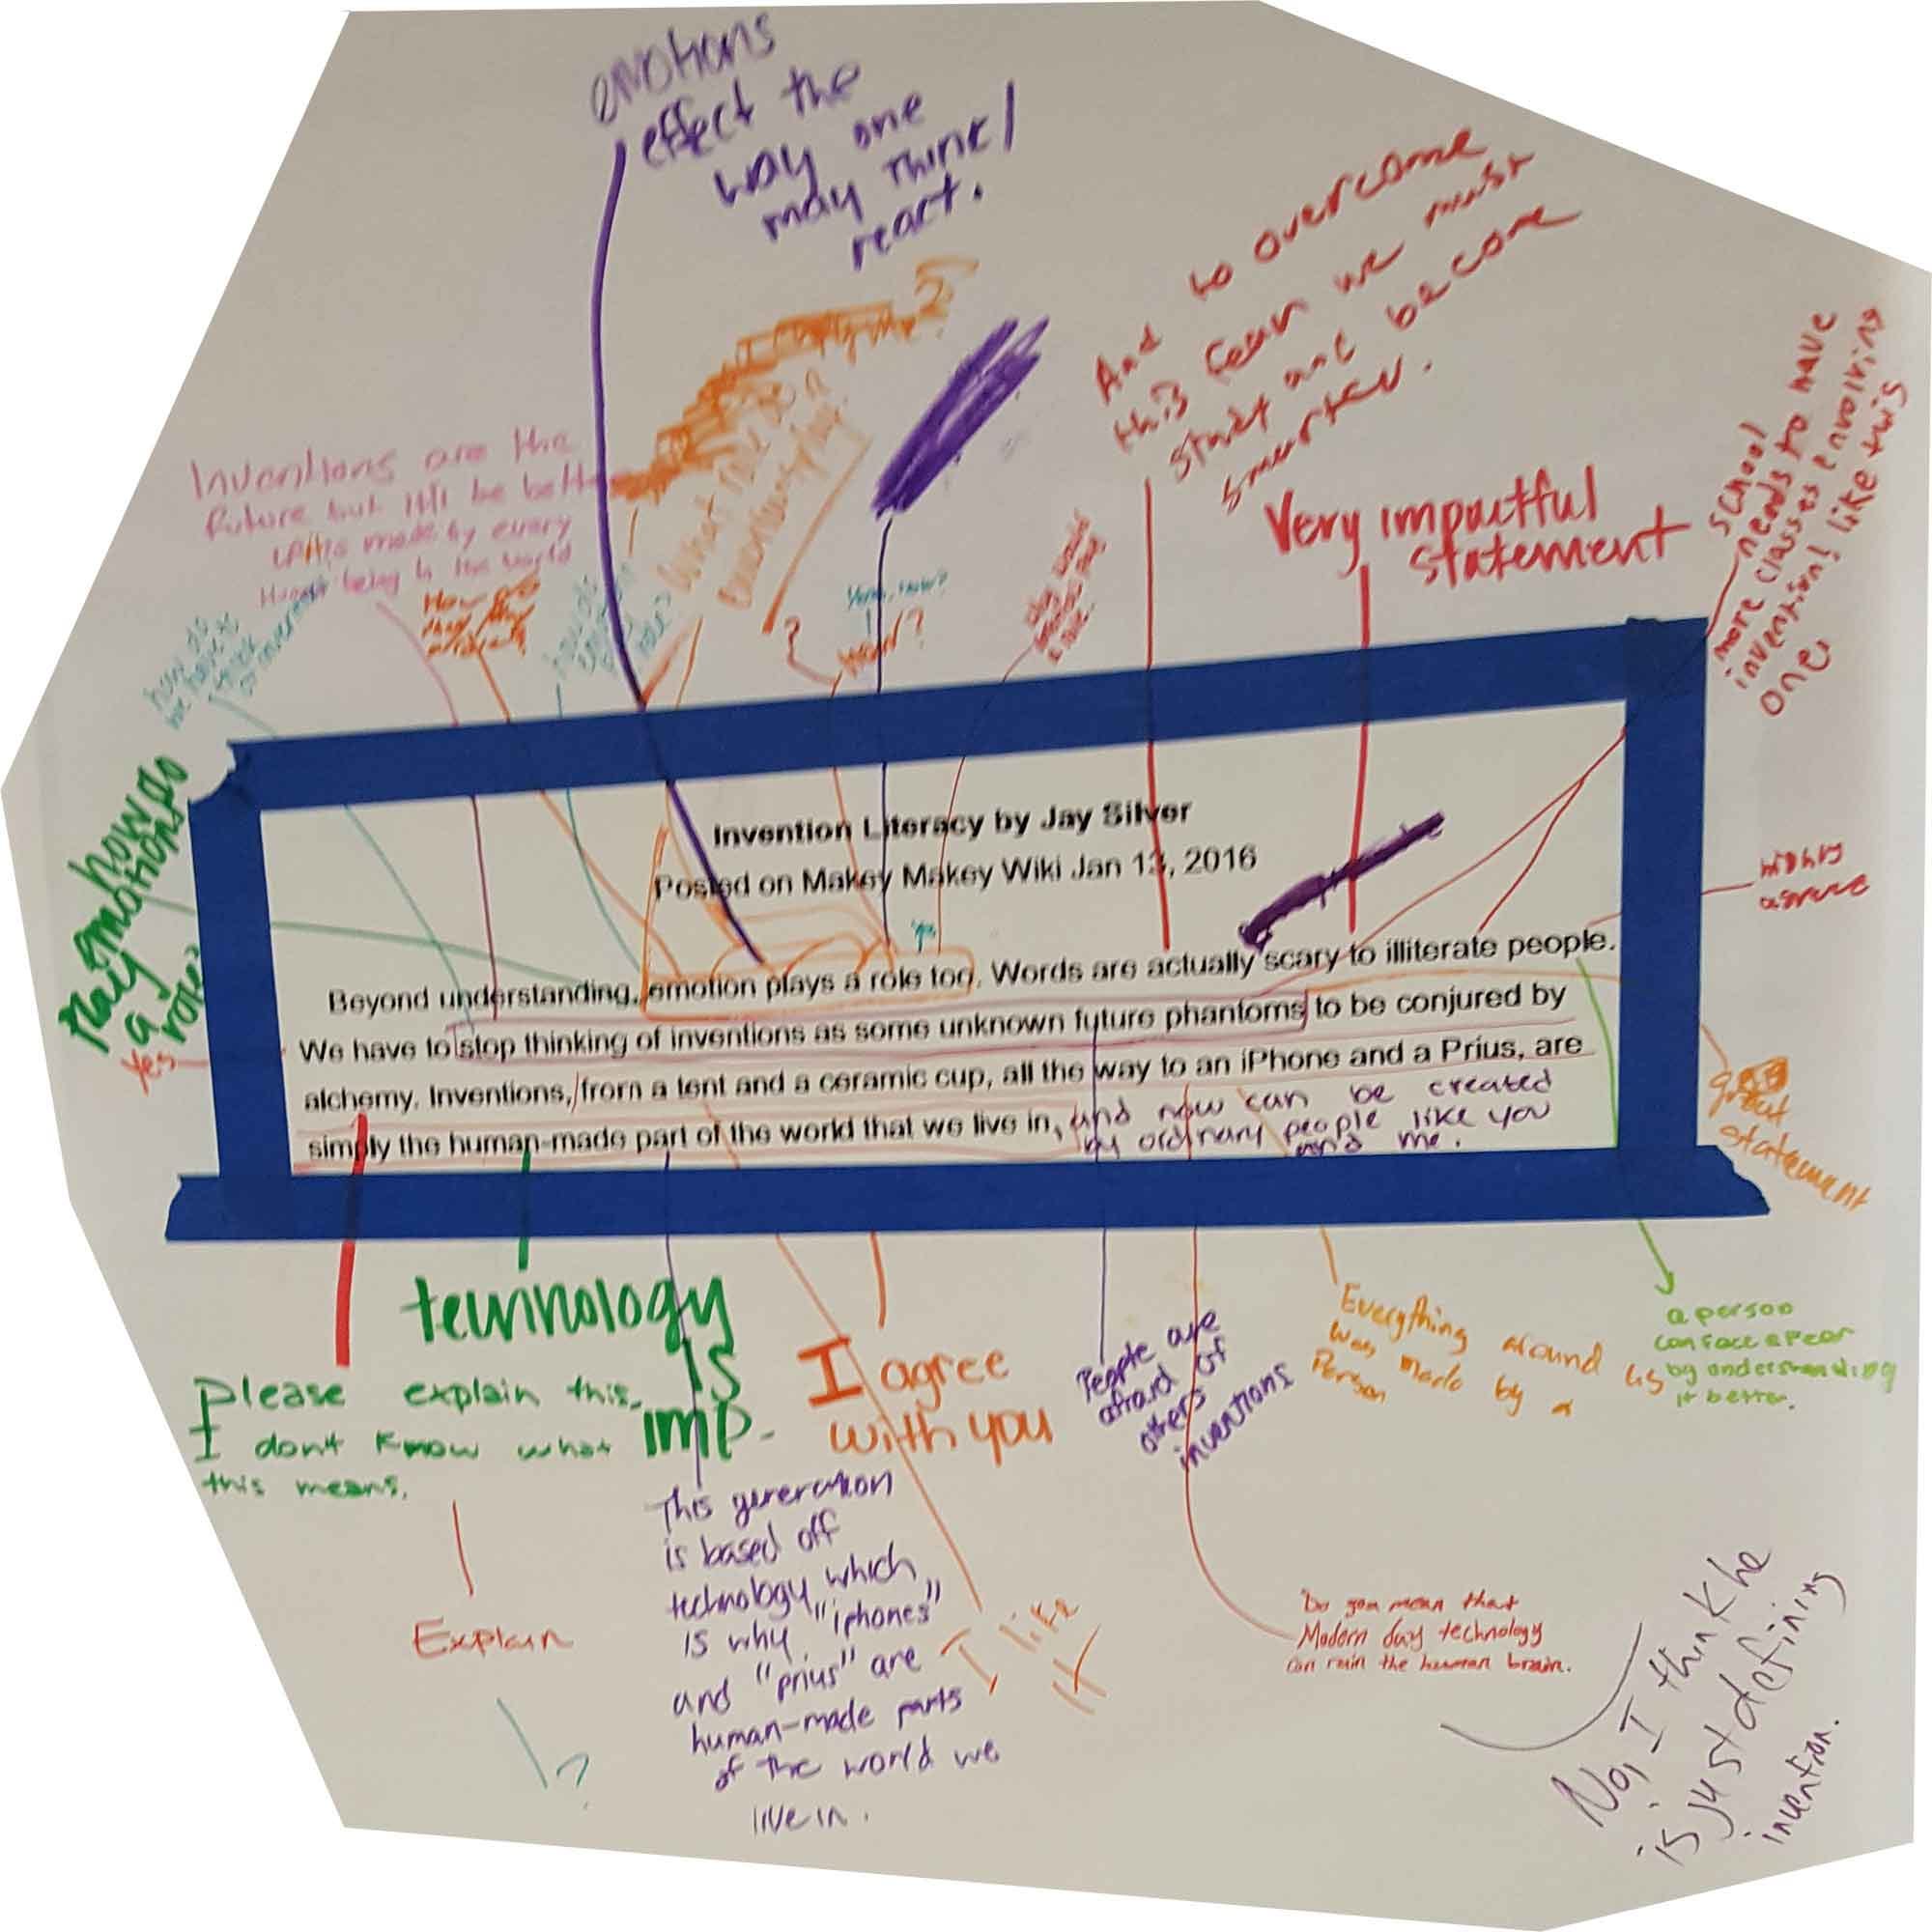 emotions
effect the
way one
may think/
react.
And to overcome
this fear we must
study and become
smarter.
school
needs to have
more classes envolving
invention! like this
one.
Inventions are the
future but
made by every
being in the world
Very impactful
statement
how do
emotions
Play
a
role?
Yes
mean?
Invention Literacy by Jay Silver
Posted on Makey Makey Wiki Jan 13, 2016
Beyond understanding, emotion plays a role too. Words are actually scary to illiterate people.
We have to stop thinking of inventions as some unknown future phantoms to be conjured by
alchemy. Inventions, from a tent and a ceramic cup, all the way to an iPhone and a Prius, are
simply the human-made part of the world that we live in, and now can be created
by ordinary people like you
and me.
highly
agree
great
statement
technology
is
imp.
Please explain this.
I don't know what
this means.
Explain
I agree
with you
People are
afraid of
others
inventions
Everything around us
was made by a
Person
a person
can face a fear
by understanding
it better.
This generation
is based off
technology which
is why "iphones"
and "prius" are
human-made parts
of the world we
live in.
I like
it
Do you mean that
Modern day technology
can ruin the human brain.
No, I think he
is just defining
invention.